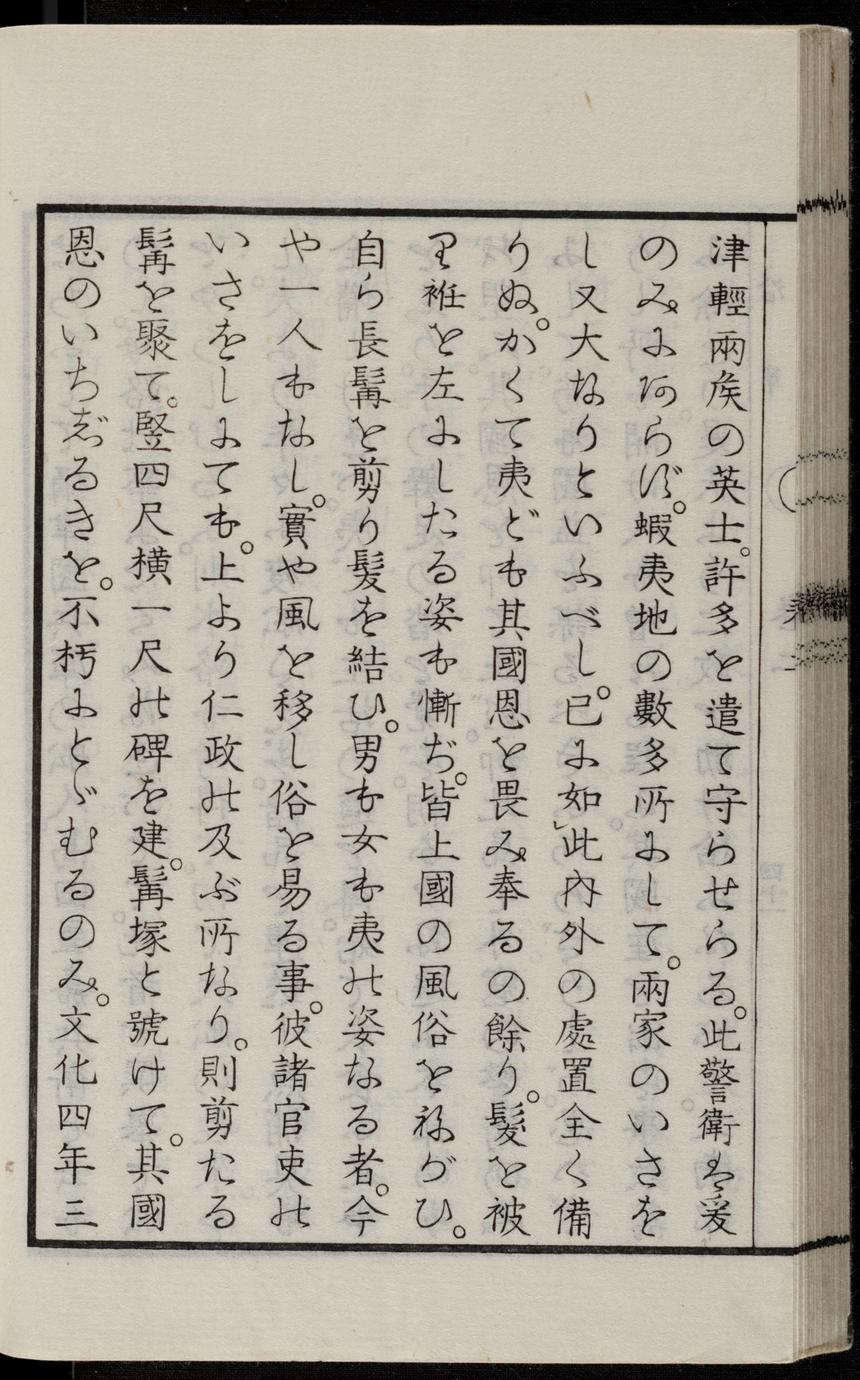 津輕兩矦の英士。許多を遣て守らせらる。此警衛は爰
のみにあらず。蝦夷地の數多所にして。兩家のいさを
し又大なりといふべし。已に如レ此內外の處置全く備
りぬ。かくて夷ども其國恩を畏み奉るの餘り。髮を被
り袵を左にしたる姿も慚ぢ。皆上國の風俗をねがひ。
自ら長髯を剪り髮を結ひ。男も女も夷の姿なる者。今
や一人もなし。實や風を移し俗を易る事。彼諸官吏の
いさをしにても。上より仁政の及ぶ所なり。則剪たる
髯を聚て。竪四尺橫一尺の碑を建。髯塚と號けて。其國
恩のいちじるきを。不朽にとゞむるのみ。文化四年三